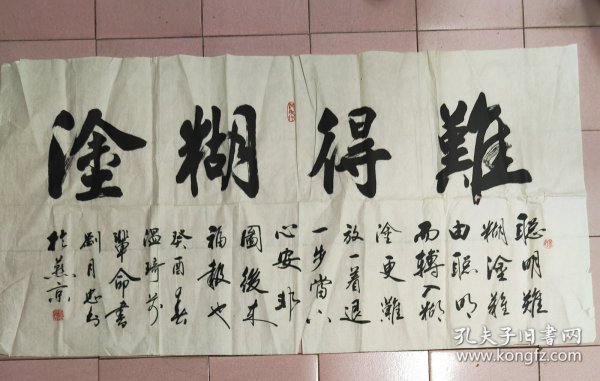 難得糊塗
聰明難
糊塗難
由聰明
而轉入糊
塗更難
放一着退
一步當下
心安非
圖後來
福報也
癸酉春
溫琦前
輩命書
劉月忠
於燕京
孔夫子旧书网
www.kongfz.com